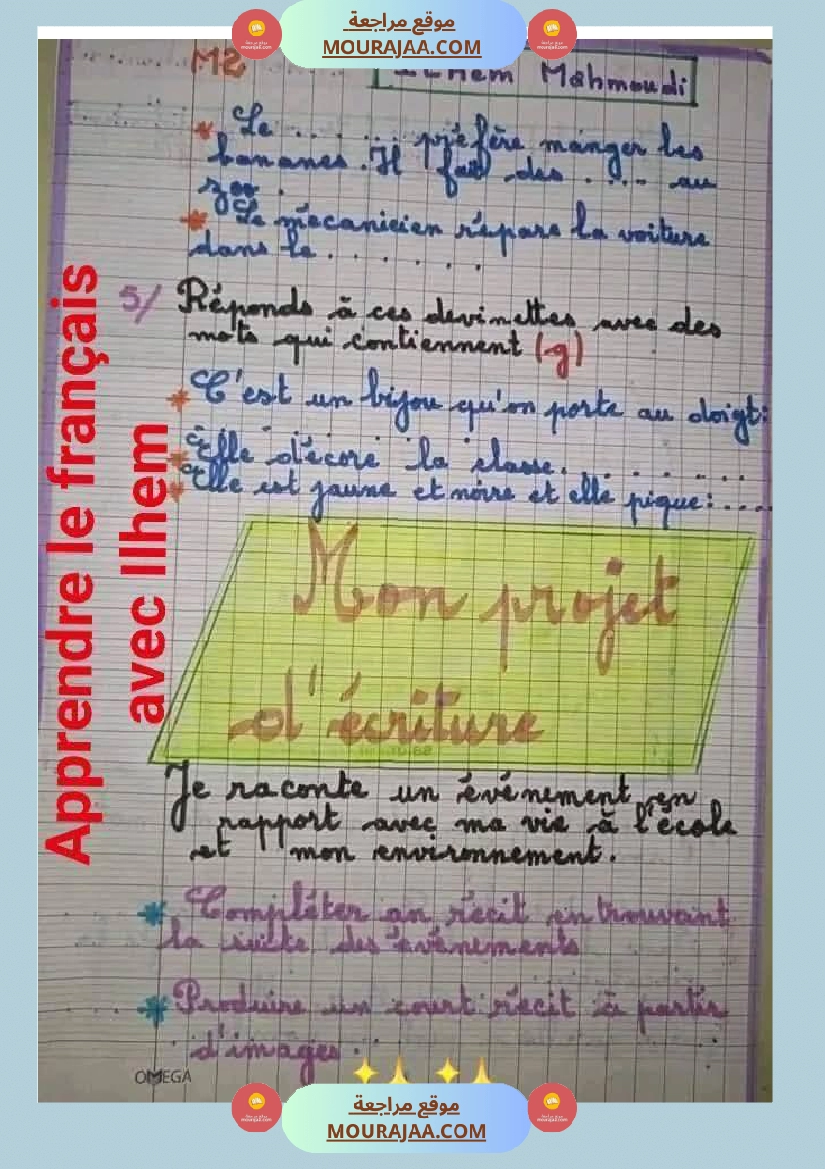 موقع مراجعة
MOURAJAA.COM
M2
Mahmoudi
* Le . . . . . . préfère manger les
bananes. Il fait des . . . . au
zoo.
* Le mécanicien répare la voiture
dans le . . . . . . .
5/ Réponds à ces devinettes avec des
mots qui contiennent (g)
* C'est un bijou qu'on porte au doigt:
* Elle décore la classe. . . . . . .
* Elle est jaune et noire et elle pique: . . . .
Mon projet
d'écriture
Je raconte un événement en
rapport avec ma vie à l'école
et mon environnement.
* Compléter un récit en trouvant
la suite des événements
* Produire un court récit à partir
d'images.
Apprendre le français
avec Ilhem
OMEGA
موقع مراجعة
MOURAJAA.COM